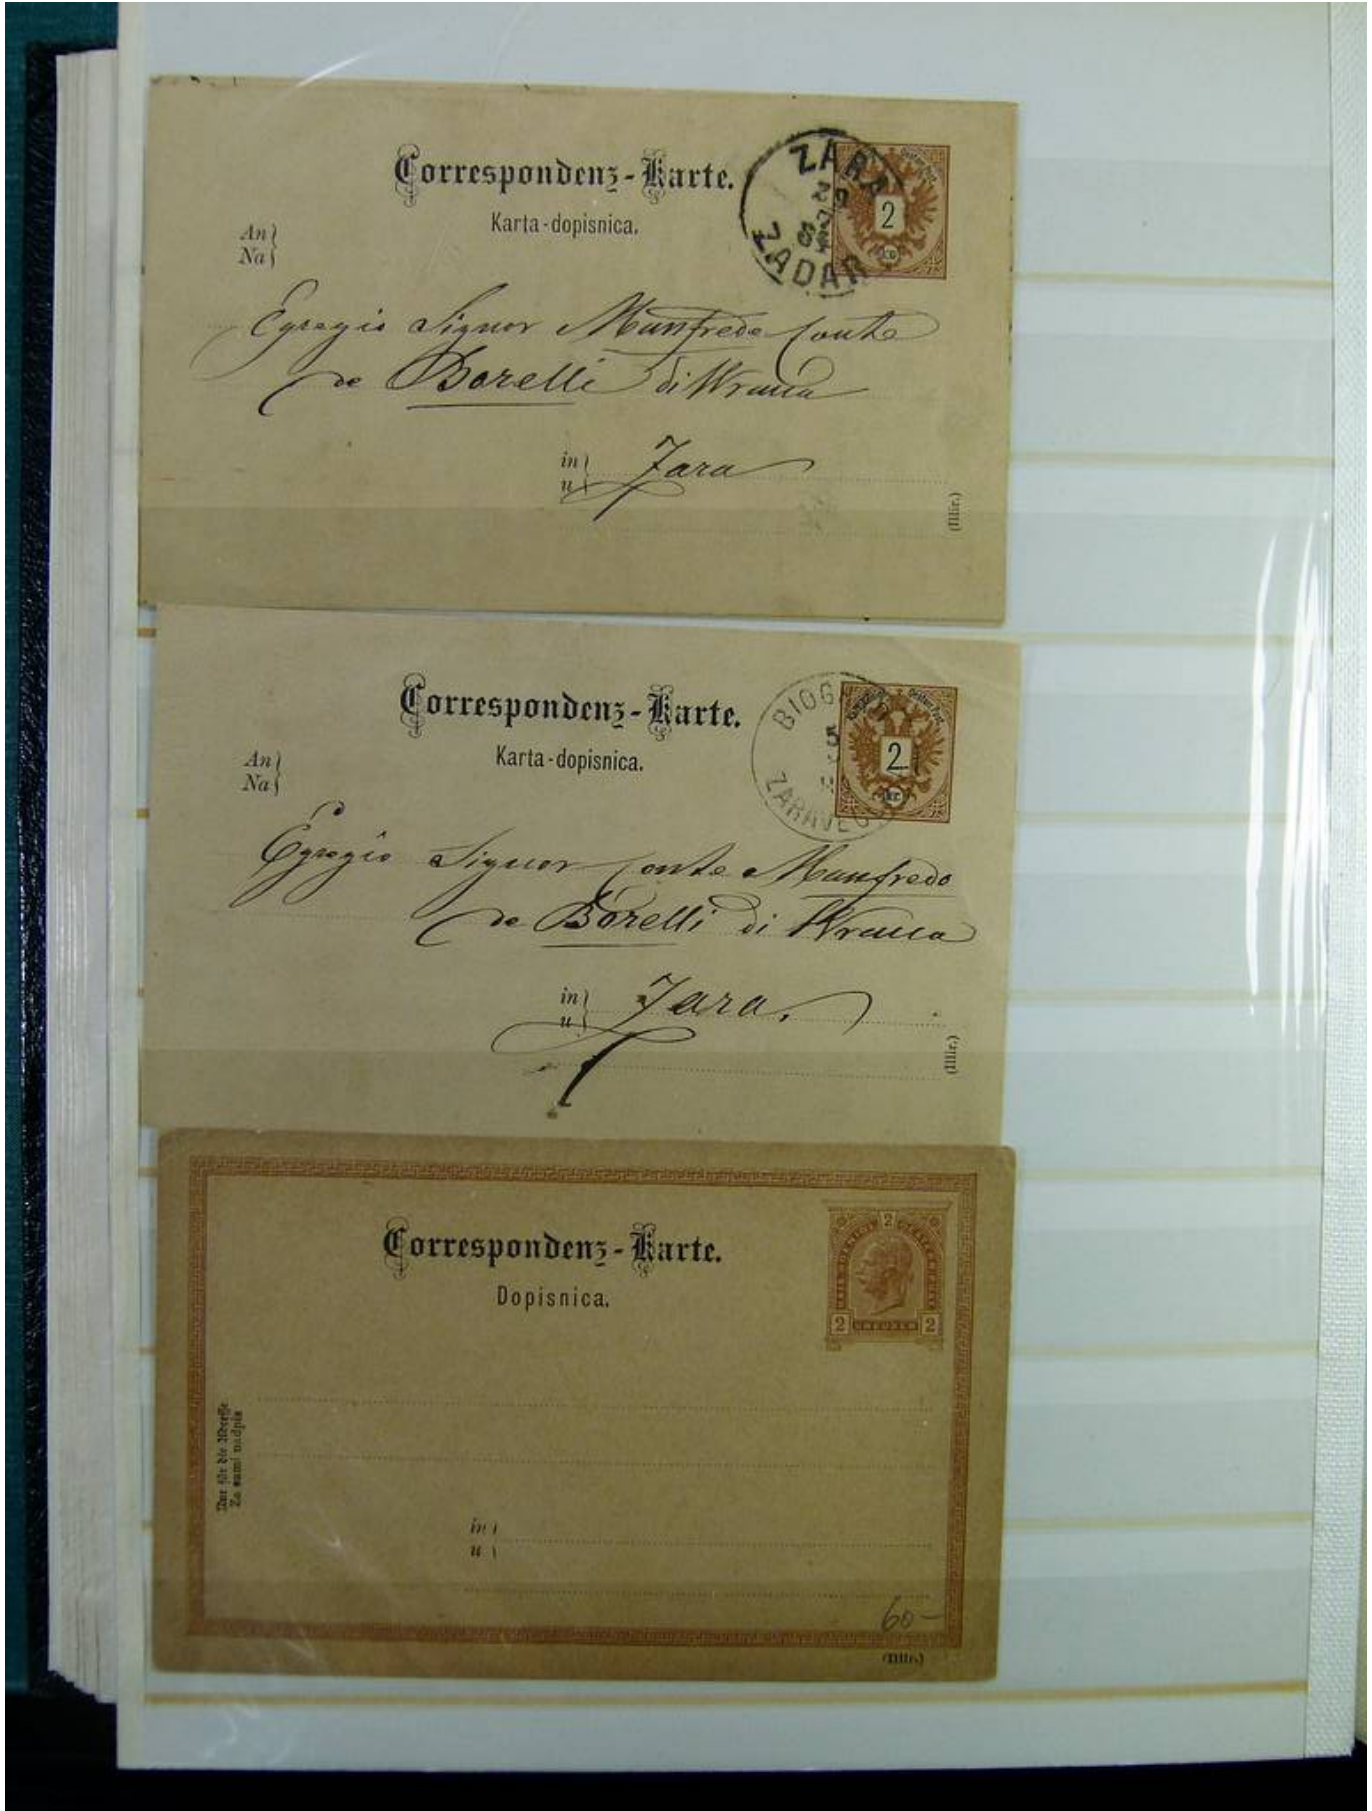 Correspondenz-Karte.
Karta-dopisnica.
An
Na
ZARA
ZADAR
2
Egregio Signor Manfredo Conte
de Borelli di Wrana
in
u
Zara
(Illir.)
Correspondenz-Karte.
Karta-dopisnica.
An
Na
ZARAVECCHIA
2
Egregio Signor Conte Manfredo
de Borelli di Wrana
in
u
Zara.
(Illir.)
Correspondenz-Karte.
Dopisnica.
2
2 KREUZER 2
Nur für die Adresse
Za sami nadpis
in
u
60-
(Illir.)